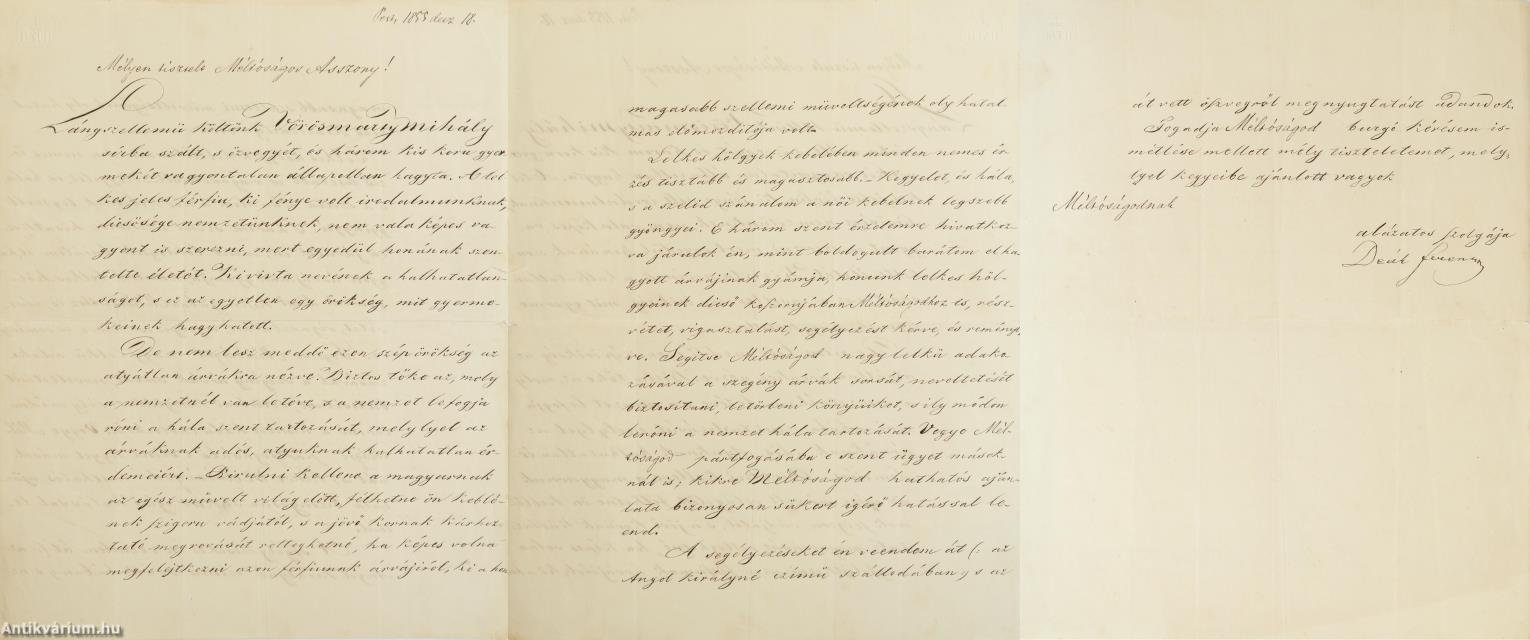 Pest, 1855 decz 18.
Mélyen tisztelt Méltóságos Asszony!
Lángszellemü költönk Vörösmarty Mihály
sirba szált, s özvegyét, és három kis koru gyer-
mekét vagyontalan állapotban hagyta. A lel-
kes jeles férfiu, ki fénye volt irodalmunknak,
dicsősége nemzetünknek, nem vala képes va-
gyont is szerezni, mert egyedül honának szen-
telte életét. Kivivta nevének a halhatatlan-
ságot, s ez az egyetlen egy örökség, mit gyerme-
keinek hagyhatott.
De nem lesz meddő ezen szép örökség az
atyátlan árvákra nézve. Biztos tőke az, mely
a nemzetnél van letéve, s a nemzet lefogja
róni a hála szent tartozását, mely lyel az
árváknak adós, atyuknak halhatatlan ér-
demeiért. – Pirulni kellene a magyarnak
az egész müvelt világ előtt, félhetne ön keblé-
nek szigoru vádjától, s a jövő kornak kárhoz-
tató megrovását retteghetné, ha képes volna
megfelejtkezni azon férfiunak árvájiról, ki a hon
magasabb szellemi müveltségének oly hatal-
mas előmozditója volt.
Lelkes hölgyek kebelében minden nemes ér-
zés tisztább és magasztosabb. – Kegyelet, és hála,
s a szelid szánalom a női kebelnek legszebb
gyöngyei. E három szent érzelemre hivatkoz-
va járulok én, mint boldogult barátom elha-
gyott árvájinak gyámja, honunk lelkes höl-
gyeinek dicső koszorujában Méltóságodhoz is, rész-
vétet, vigasztalást, segélyezést kérve, és remény-
ve. Segitse Méltóságod nagy lelkü adako-
zásával a szegény árvák sorsát, neveltetését
biztositani, letörleni könyüiket, s ily módon
leróni a nemzet hála tartozását. Vegye Mél-
tóságod pártfogásába e szent ügyet mások-
nál is; kikre Méltóságod hathatós aján-
lata bizonyosan sükert igérő hatással le-
end.
A segélyezéseket én veendem át (: az
Angol királyné czimü szállodában :) s az
át vett öszvegről megnyugtatást adandok.
Fogadja Méltóságod buzgó kérésem is-
métlése mellett mély tiszteletemet, mely-
lyel kegyeibe ajánlott vagyok
Méltóságodnak
alázatos szolgája
Deák Ferencz
Antikvárium.hu